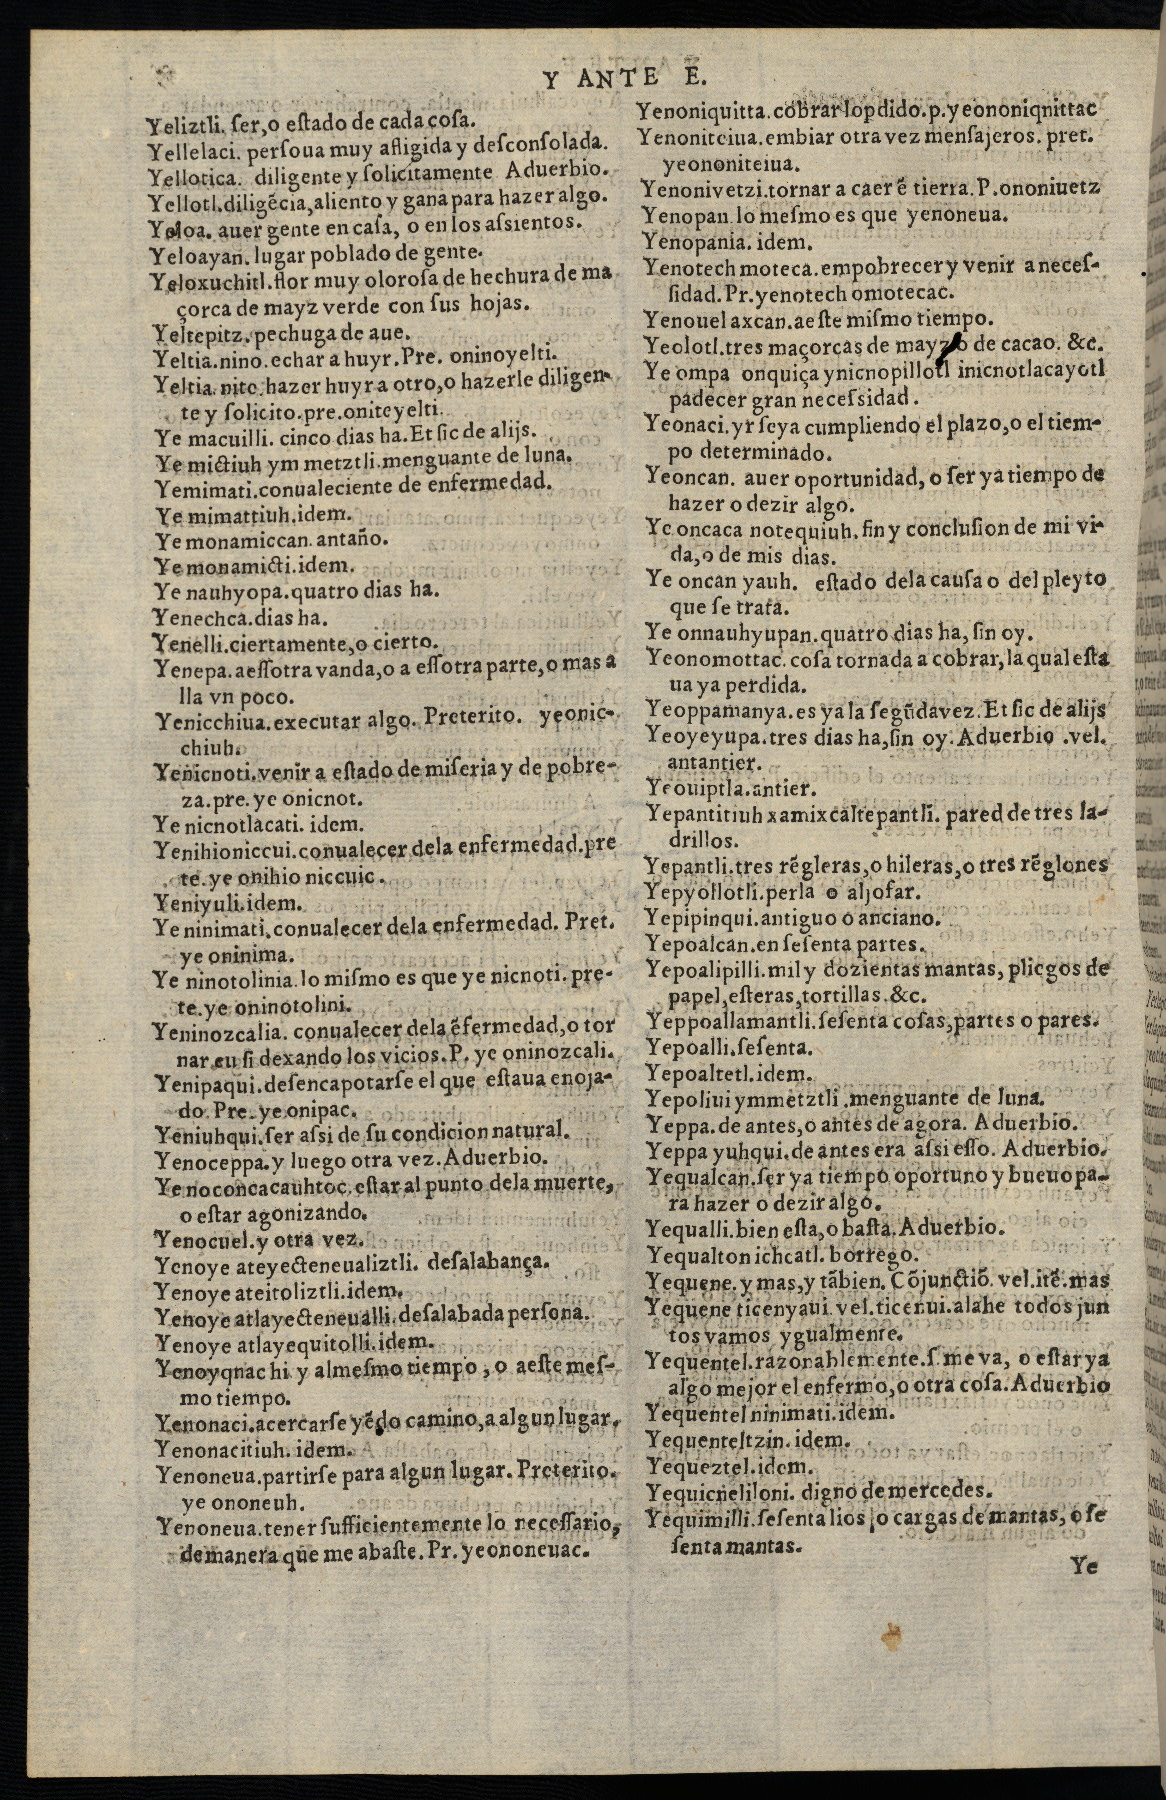 Y ANTE E.
Yeliztli. ſer,o eſtado de cada coſa.
Yellelaci. perſoua muy afligida y deſconſolada.
Yellotica. diligente y ſolicitamente Aduerbio.
Yellotl.diligẽcia,aliento y gana para hazer algo.
Yeloa. auer gente en caſa, o en los aſsientos.
Yeloayan. lugar poblado de gente.
Yeloxuchitl.flor muy oloroſa de hechura de ma
çorca de mayz verde con ſus hojas.
Yeltepitz.pechuga de aue.
Yeltia.nino.echar a huyr.Pre. oninoyelti.
Yeltia.nite.hazer huyr a otro,o hazerle diligen-
te y ſolicito.pre.oniteyelti.
Ye macuilli. cinco dias ha.Et ſic de alijs.
Ye mictiuh ym metztli.menguante de luna.
Yemimati.conualeciente de enfermedad.
Ye mimattiuh.idem.
Ye monamiccan.antaño.
Ye monamicti.idem.
Ye nauhyopa.quatro dias ha.
Yenechca.dias ha.
Yenelli.ciertamente,o cierto.
Yenepa.aeſſotra vanda,o a eſſotra parte,o mas a
lla vn poco.
Yenicchiua.executar algo. Preterito. yeonic-
chiuh.
Yenicnoti.venir a eſtado de miſeria y de pobre-
za.pre.ye onicnot.
Ye nicnotlacati. idem.
Yenihioniccui.conualecer dela enfermedad.pre
te.ye onihio niccuic.
Yeniyuli.idem.
Ye ninimati.conualecer dela enfermedad. Pret.
ye oninima.
Ye ninotolinia.lo miſmo es que ye nicnoti.pre-
te.ye oninotolini.
Yeninozcalia. conualecer dela ẽfermedad,o tor
nar eu ſi dexando los vicios.P. ye oninozcali.
Yenipaqui.deſencapotarſe el que eſtaua enoja-
do.Pre.ye onipac.
Yeniuhqui.ſer aſsi de ſu condicion natural.
Yenoceppa.y luego otra vez.Aduerbio.
Ye noconcacauhtoc.eſtar al punto dela muerte,
o eſtar agonizando.
Yenocuel.y otra vez.
Yenoye ateyecteneualiztli. deſalabança.
Yenoye ateitoliztli.idem.
Yenoye atlayecteneualli.deſalabada perſona.
Yenoye atlayequitolli.idem.
Yenoyqnac hi y almeſmo tiempo, o aeſte meſ-
mo tiempo.
Yenonaci.acercarſe yẽdo camino,a algun lugar.
Yenonacitiuh.idem.
Yenoneua.partirſe para algun lugar. Preterito.
ye ononeuh.
Yenoneua.tener ſufficientemente lo neceſſario,
demanera que me abaſte.Pr.yeononeuac.
Yenoniquitta.cobrar lopdido.p.yeononiqnittac
Yenoniteiua.embiar otra vez menſajeros. pret.
yeononiteiua.
Yenonivetzi.tornar a caer ẽ tierra.P.ononiuetz
Yenopan.lo meſmo es que yenoneua.
Yenopania. idem.
Yenotech moteca.empobrecer y venir a neceſ-
ſidad.Pr.yenotech omotecac.
Yenouel axcan.aeſte miſmo tiempo.
Yeolotl.tres maçorcas de mayz o de cacao. &c.
Ye ompa onquiça ynicnopillotl inicnotlacayotl
padecer gran neceſsidad.
Yeonaci.yr ſeya cumpliendo el plazo,o el tiem-
po determinado.
Yeoncan. auer oportunidad, o ſer ya tiempo de
hazer o dezir algo.
Ye oncaca notequiuh.fin y concluſion de mi vi-
da,o de mis dias.
Ye oncan yauh. eſtado dela cauſa o del pleyto
que ſe trata.
Ye onnauhyupan.quatro dias ha, ſin oy.
Yeonomottac.coſa tornada a cobrar,la qual eſta
ua ya perdida.
Yeoppamanya.es ya la ſegũda vez.Et ſic de alijs
Yeoyeyupa.tres dias ha,ſin oy.Aduerbio .vel.
antantier.
Yeouiptla.antier.
Yepantitiuh xamixcaltepantli. pared de tres la-
drillos.
Yepantli.tres rẽgleras,o hileras,o tres rẽglones
Yepyollotli.perla o aljofar.
Yepipinqui.antiguo o anciano.
Yepoalcan.en ſeſenta partes.
Yepoalipilli.mil y dozientas mantas, pliegos de
papel,eſteras,tortillas.&c.
Yeppoallamantli.ſeſenta coſas,partes o pares.
Yepoalli.ſeſenta.
Yepoaltetl.idem.
Yepoliui ymmetztli .menguante de luna.
Yeppa.de antes,o antes de agora. Aduerbio.
Yeppa yuhqui.de antes era aſsi eſſo. Aduerbio.
Yequalcan.ſer ya tiempo oportuno y bueuo pa-
ra hazer o dezir algo.
Yequalli.bien eſta,o baſta.Aduerbio.
Yequalton ichcatl. borrego.
Yequene.y mas,y tãbien. Cõjunctiõ. vel.itẽ.mas
Yequene ticenyaui.vel.ticenui.alahe todos jun
tos vamos ygualmente.
Yequentel.razonablemente.ſ.me va, o eſtar ya
algo mejor el enfermo,o otra coſa.Aduerbio
Yequentel ninimati.idem.
Yequenteltzin.idem.
Yequeztel.idem.
Yequicneliloni. digno de mercedes.
Yequimilli.ſeſenta lios ,o cargas de mantas, o ſe
ſenta mantas.
Ye